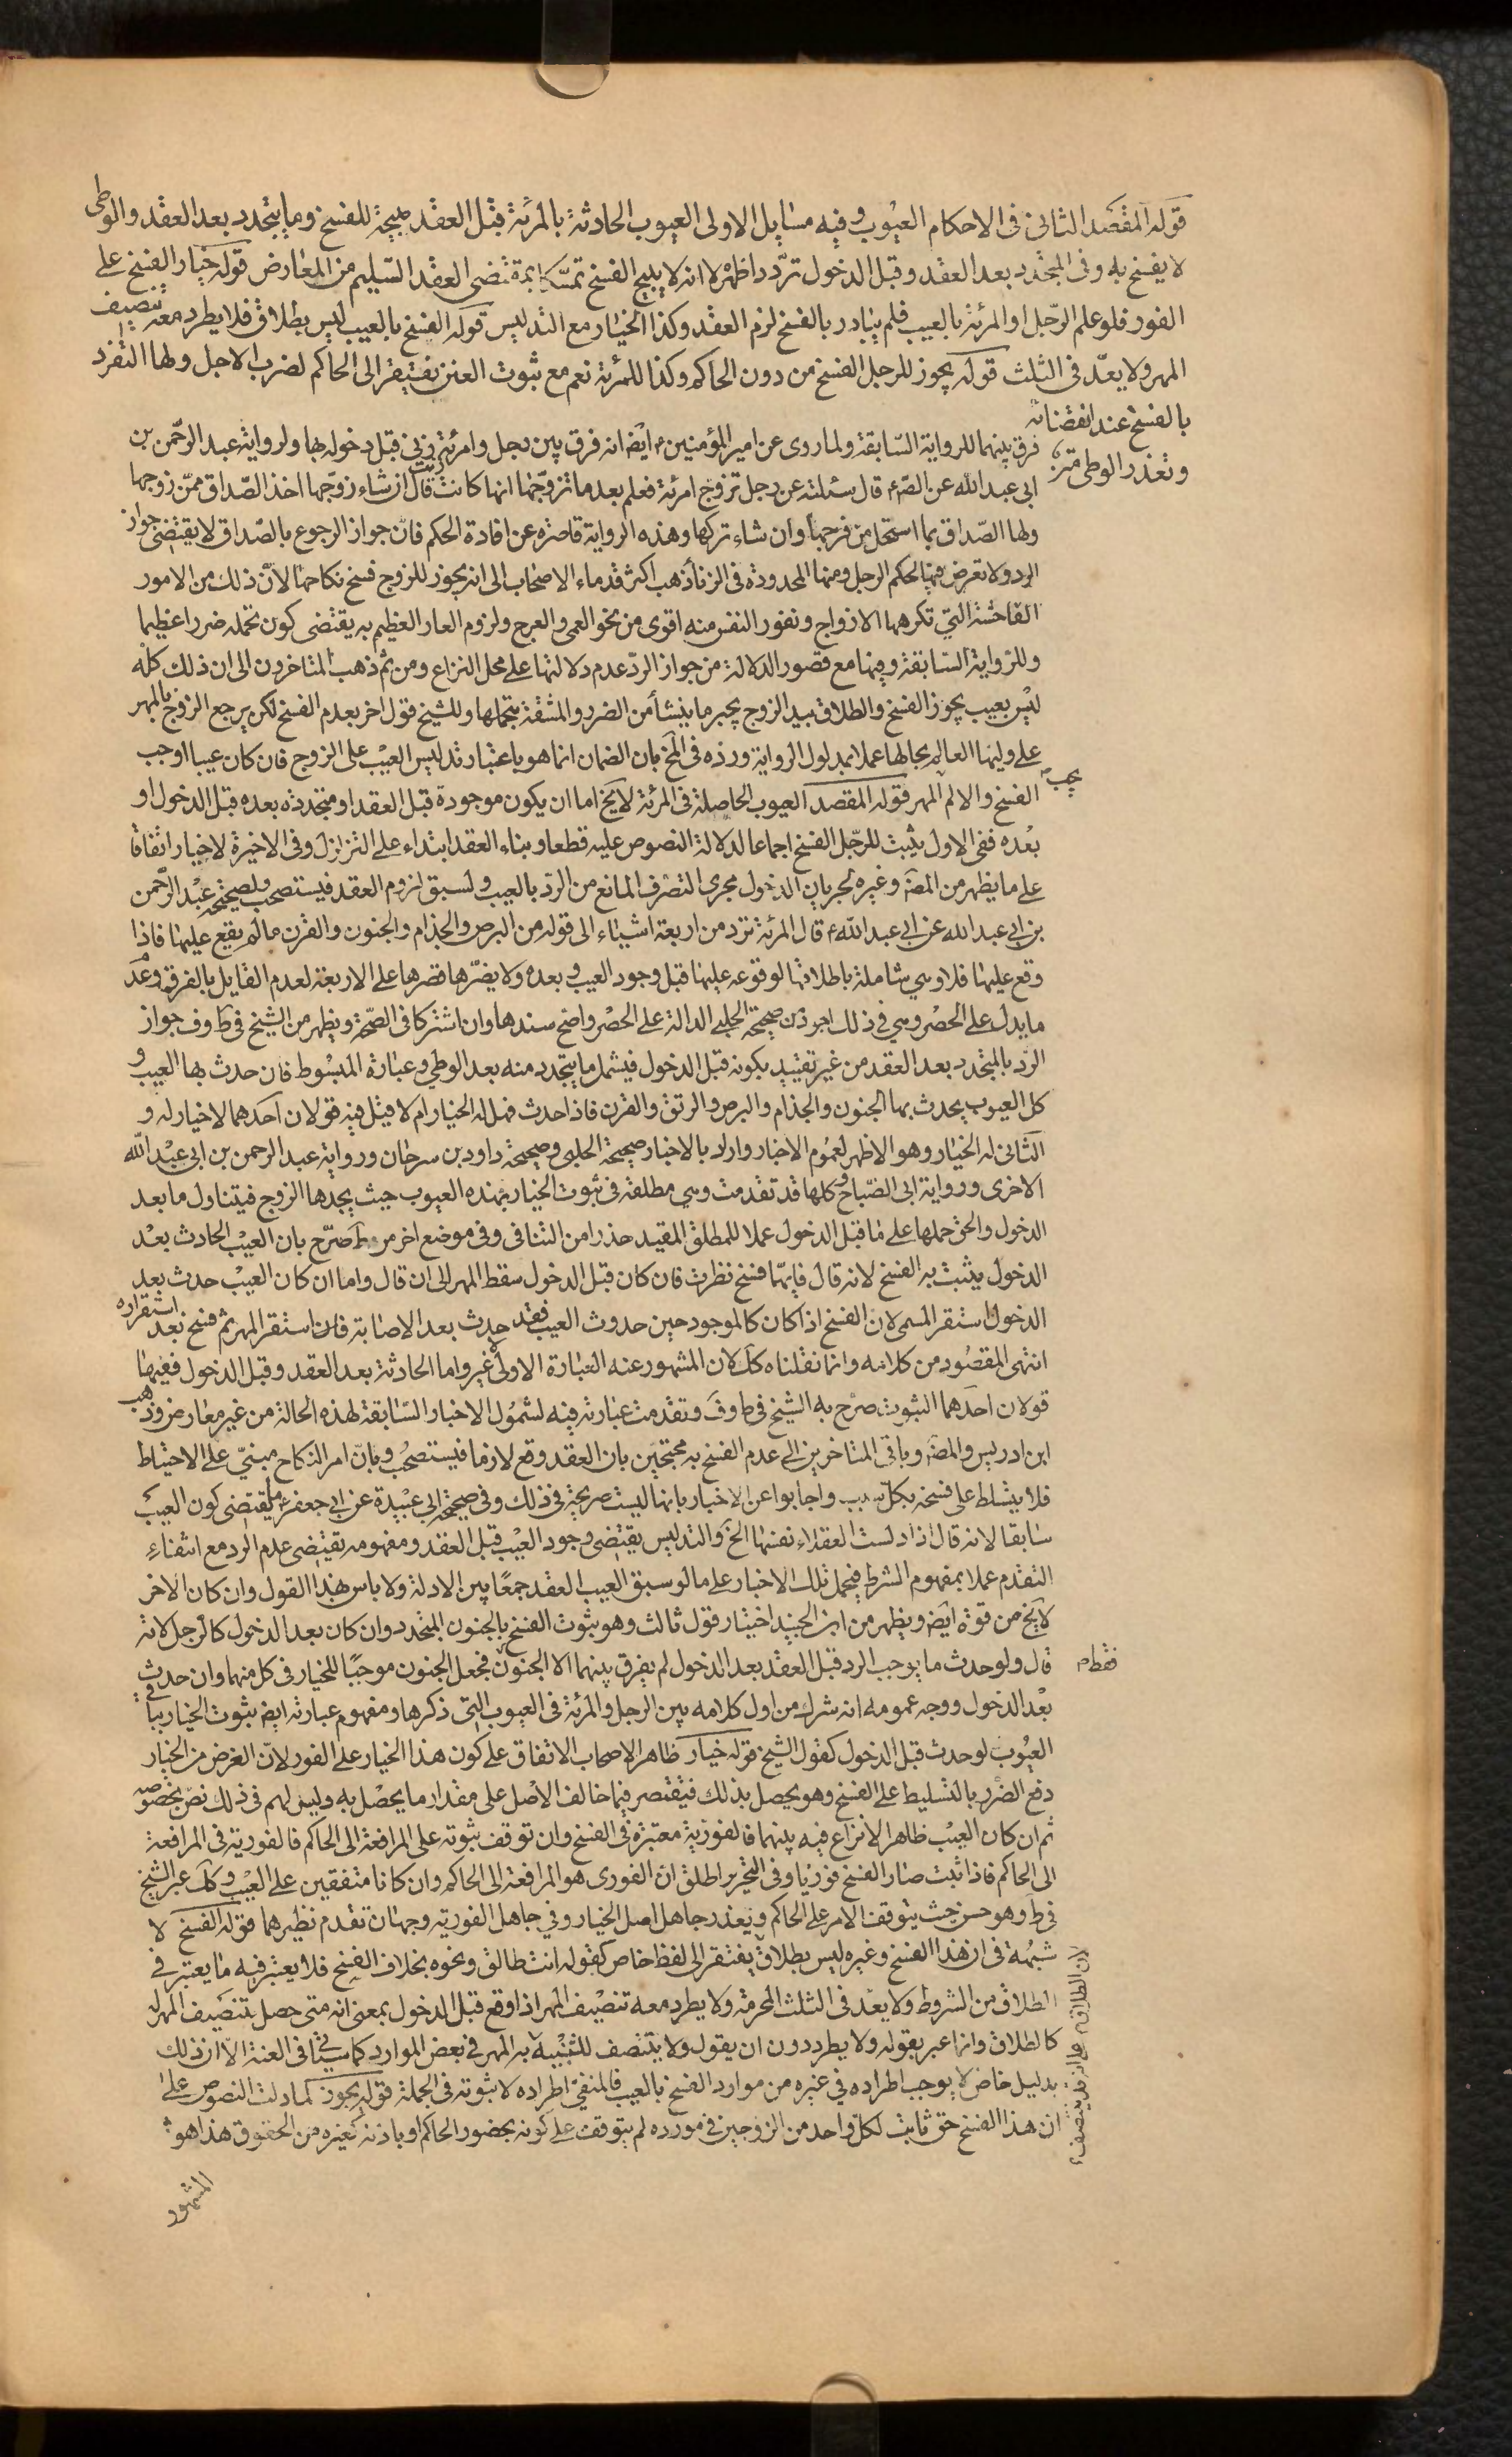 قوله المقصد الثانى فى الاحكام العيوب وفيه مسايل الاولى العيوب الحادثة بالمرئة قبل العقد مبيحة للفسخ وما يتجدد بعد العقد والوطى
لا يفسخ به وفى المتجدد بعد العقد وقبل الدخول تردد اظهره انه لا يبيح الفسخ تمسكا بمقتضى العقد السليم من المعارض قوله خيار الفسخ على
الفور فلو علم الرجل او المرئة بالعيب فلم يبادر بالفسخ لزم العقد وكذا الخيار مع التدليس قوله الفسخ بالعيب ليس بطلاق فلا يطرد معه تنصيف
المهر ولا يعد فى الثلث قوله يجوز للرجل الفسخ من دون الحاكم وكذا للمرئة نعم مع ثبوت العنن يفتقر الى الحاكم لضرب الاجل ولها التفرد
بالفسخ عند انقضائه
وتعذر الوطى
فرق بينهما للرواية السابقة ولما روى عن امير المؤمنين ع ايضا انه فرق بين رجل وامرئة زنى قبل دخوله بها ولرواية عبد الرحمن بن
ابى عبد الله عن الص ع قال سئلته عن رجل تزوج امرئة فعلم بعد ما تزوجها انها كانت زنت قال ان شاء زوجها اخذ الصداق ممن زوجها
ولها الصداق بما استحل من فرجها وان شاء تركها وهذه الرواية قاصرة عن افادة الحكم فان جواز الرجوع بالصداق لا يقتضى جواز
الرد ولا تعرض فيها لحكم الرجل ومنها المحدودة فى الزنا ذهب اكثر قدماء الاصحاب الى انه يجوز للزوج فسخ نكاحها لان ذلك من الامور
الفاحشة التى تكرهها الازواج ونفور النفس منه اقوى من نحو العمى والعرج ولزوم العار العظيم به يقتضى كون تحمله ضررا عظيما
وللرواية السابقة وفيها مع قصور الدلالة من جواز الرد عدم دلالتها على محل النزاع ومن ثم ذهب المتاخرون الى ان ذلك كله
ليس بعيب يجوز الفسخ والطلاق بيد الزوج يجبر ما ينشأ من الضرر والمشقة بتحملها وللشيخ قول اخر بعدم الفسخ لكن يرجع الزوج بالمهر
على وليها العالم بحالها عملا بمدلول الرواية ورده فى المخ بان الضمان انما هو باعتبار تدليس العيب على الزوج فان كان عيبا اوجب
الفسخ والا لم يجب المهر قوله المقصد العيوب الحاصلة فى المرئة لا يخ اما ان يكون موجودة قبل العقد او متجددة بعده قبل الدخول او
بعده ففى الاول يثبت للرجل الفسخ اجماعا لدلالة النصوص عليه قطعا وبناء العقد ابتداء على التزلزل وفى الاخيرة لا خيار اتفاقا
على ما يظهر من المصّ وغيره لجريان الدخول مجرى التصرف المانع من الرد بالعيب ولسبق لزوم العقد فيستصحب ولصحيحة عبد الرحمن
بن ابى عبد الله عن ابى عبد الله ع قال المرئة ترد من اربعة اشياء الى قوله من البرص والجذام والجنون والقرن ما لم يقع عليها فاذا
وقع عليها فلا وهى شاملة باطلاقها لوقوعه عليها قبل وجود العيب وبعده ولا يضرها قصرها على الاربعة لعدم القايل بالفرق وعدم
ما يدل على الحصر وهى فى ذلك اجود من صحيحة الحلبى الدالة على الحصر واضح سندها وان اشتركا فى الصحة ويظهر من الشيخ فى ط وف جواز
الرد بالمتجدد بعد العقد من غير تقييد بكونه قبل الدخول فيشمل ما يتجدد منه بعد الوطى وعبارة المبسوط فان حدث بها العيب و
كل العيوب يحدث بها الجنون والجذام والبرص والرتق والقرن فاذا حدث فهل له الخيار ام لا قيل فيه قولان احدهما لا خيار له و
الثانى له الخيار وهو الاظهر لعموم الاخبار واراد بالاخبار صحيحة الحلبى وصحيحة داود بن سرحان ورواية عبد الرحمن بن ابى عبد الله
الاخرى ورواية ابى الصباح وكلها قد تقدمت وهى مطلقة فى ثبوت الخيار بهذه العيوب حيث يجدها الزوج فيتناول ما بعد
الدخول والحق حملها على ما قبل الدخول عملا للمطلق المقيد حذرا من التنافى وفى موضع اخر من ط صرح بان العيب الحادث بعد
الدخول يثبت به الفسخ لانه قال فايهما فسخ نظرت فان كان قبل الدخول سقط المهر الى ان قال واما ان كان العيب حدث بعد
الدخول استقر المسمى لان الفسخ اذا كان كالموجود حين حدوث العيب فقد حدث بعد الاصابة فلان استقر المهر ثم فسخ بعد استقراره
انتهى المقصود من كلامه وانما نقلناه كك لان المشهور عنه العبارة الاولى لا غير واما الحادثة بعد العقد وقبل الدخول ففيها
قولان احدهما الثبوت صرح به الشيخ فى ط وف وتقدمت عبارته فيه لشمول الاخبار السابقة لهذه الحالة من غير معارض وذهب
ابن ادريس والمصّ وباقى المتاخرين الى عدم الفسخ به محتجين بان العقد وقع لازما فيستصحب وبان امر النكاح مبنى على الاحتياط
فلا يتسلط على فسخه بكل سبب واجابوا عن الاخبار بانها ليست صريحة فى ذلك وفى صحيحة ابى عبيدة عن ابى جعفر ع ما يقتضى كون العيب
سابقا لانه قال اذا دلست العفلاء نفسها الخ والتدليس يقتضى وجود العيب قبل العقد ومفهومه يقتضى عدم الرد مع انتفاء
التقدم عملا بمفهوم الشرط فيحمل تلك الاخبار على ما لو سبق العيب العقد جمعا بين الادلة ولا باس بهذا القول وان كان الاخر
لا يخ من قوة ايض ويظهر من ابن الجنيد اختيار قول ثالث وهو ثبوت الفسخ بالجنون المتجدد وان كان بعد الدخول كالرجل لانه
قال ولو حدث ما يوجب الرد قبل العقد بعد الدخول لم يفرق بينهما الا الجنون فقط فجعل الجنون موجبا للخيار فى كل منهما وان حدث
بعد الدخول ووجه عمومه له انه شرك من اول كلامه بين الرجل والمرئة فى العيوب التى ذكرها ومفهوم عبارته ايض ثبوت الخيار بباقى
العيوب لو حدث قبل الدخول كقول الشيخ قوله خيار ظاهر الاصحاب الاتفاق على كون هذا الخيار على الفور لان الغرض من الخيار
دفع الضرر بالتسليط على الفسخ وهو يحصل بذلك فيقتصر فيما خالف الاصل على مقدار ما يحصل به وليس لهم فى ذلك نص بخصوصه
ثم ان كان العيب ظاهرا لا نزاع فيه بينهما فالفورية معتبرة فى الفسخ وان توقف ثبوته على المرافعة الى الحاكم فالفورية فى المرافعة
الى الحاكم فاذا ثبت صار الفسخ فوريا وفى التحرير اطلق ان الفورى هو المرافعة الى الحاكم وان كانا متفقين على العيب وكك عبر الشيخ
فى ط وهو حسن حيث يتوقف الامر على الحاكم ويعذر جاهل اصل الخيار وفى جاهل الفورية وجهان تقدم نظيرهما قوله الفسخ لا
شبهة فى ان هذا الفسخ وغيره ليس بطلاق لان الطلاق يفتقر الى لفظ خاص كقوله انت طالق ونحوه بخلاف الفسخ فلا يعتبر فيه ما يعتبر فى
الطلاق من الشروط ولا يعد فى الثلث المحرمة ولا يطرد معه تنصيف المهر اذا وقع قبل الدخول بمعنى انه متى حصل يتنصف المهر له
كالطلاق وانما عبر بقوله ولا يطرد دون ان يقول ولا يتنصف للتنبيه على انه قد يتنصف به المهر فى بعض الموارد كما سيجئ فى العنة الا ان ذلك
بدليل خاص لا يوجب اطراده فى غيره من موارد الفسخ بالعيب فالمنفى اطراده لا ثبوته فى الجملة قوله يجوز كما دلت النصوص على
ان هذا الفسخ حق ثابت لكل واحد من الزوجين فى مورده لم يتوقف على كونه بحضور الحاكم او باذنه كغيره من الحقوق هذا هو
المشهور